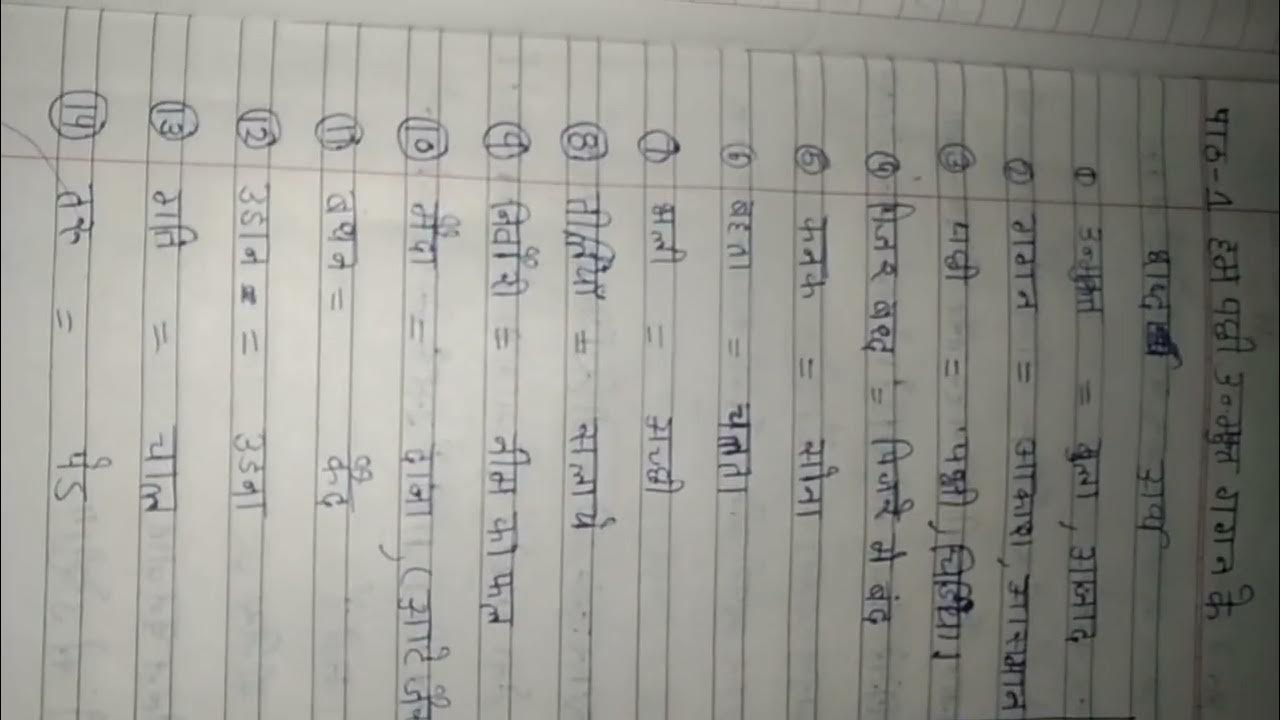 पाठ-1 हम पंछी उन्मुक्त गगन के
शब्द अर्थ
① उन्मुक्त = खुला, आजाद
② गगन = आकाश, आसमान
③ पंछी = पक्षी, चिड़िया।
④ पिंजर बद्ध = पिंजरे में बंद
⑤ कनक = सोना
⑥ बहता = चलता
⑦ भली = अच्छी
⑧ तीलियाँ = सलाये
⑨ निबौरी = नीम का फल
⑩ =
⑪ बंधन = कैद
⑫ उडान = उडना
⑬ गति = चाल
⑭ तरू = पेड